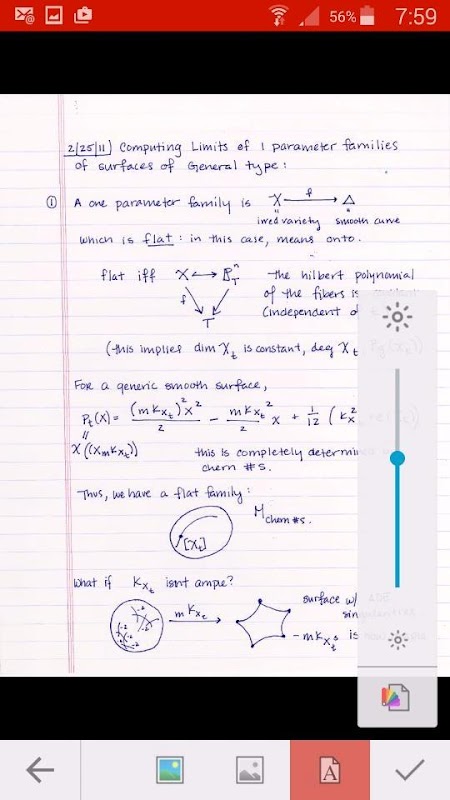 56% 7:59
2/25/11 Computing Limits of 1 parameter families
of surfaces of General type:
① A one parameter family is X —f→ Δ
irred variety smooth curve
which is flat: in this case, means onto.
flat iff X ↔ ℙⁿ_T the hilbert polynomial
f of the fibers is
T (independent of
(this implies dim X_t is constant, deg X_t, P_g(X_t))
For a generic smooth surface,
P_t(X) = (mK_{X_t})²x²/2 − mK_{X_t}²/2 x + 1/12 (K_{X}²
χ((x_mK_{X_t})) this is completely determined
chern #s.
Thus, we have a flat family:
M_{chern #s}.
[X_t]
What if K_{X_t} isnt ample?
-2 -2 -2 -2 mK_{X_t} surface w/ ADE
singularities
- mK_{X_t^s} is
A